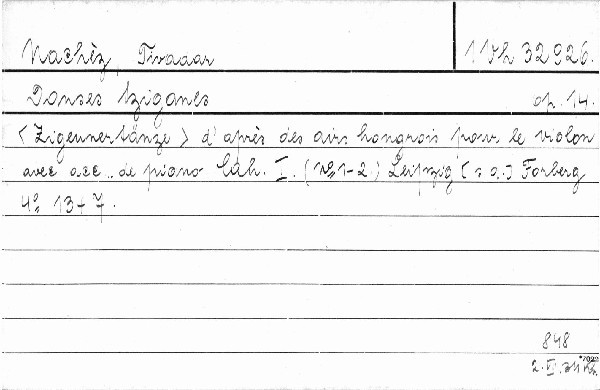 Nachèz, Tivadar 1 Vh 32926.
Danses tziganes op. 14.
<Zigeunertänze> d'après des airs hongrois pour le violon
avec acc. de piano Cah. I. (No 1-2.) Leipzig [s.a.] Forberg
4° 13+7.
848
2. VI.